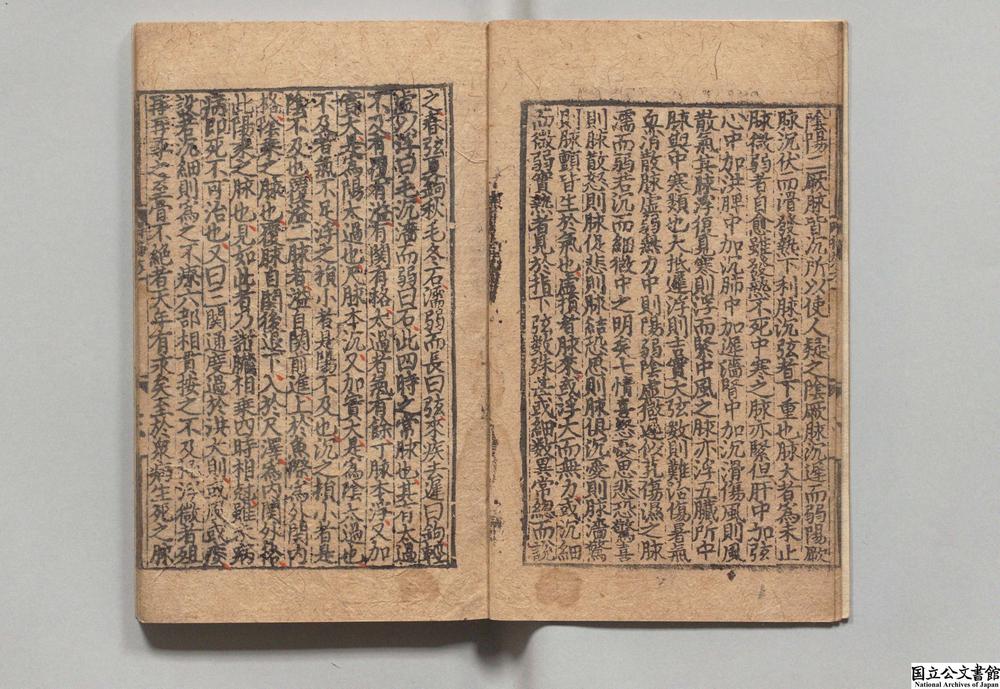 陰陽二厥脉皆沉所以使人疑之陰厥脉沉遲而弱陽厥
脉沉伏而滑發熱下利脉沉弦者下重也脉大者為未止
脉微弱者自愈雖發熱不死中寒之脉亦緊但肝中加弦
心中加洪脾中加沉肺中加遲濇腎中加沉滑傷風則風
散氣其脉浮復見寒則浮而緊中風之脉亦浮五臟所中
脉與中寒類也大抵遲浮則吉實大弦數則難治傷暑氣
血消散脉虛弱熱力中則陽弱陰虛微遲似㐌傷濕之脉
濡而弱若沉而細微中之明矣七情喜怒憂思悲恐驚喜
則脉散怒則脉促悲則脉結恐思則脉俱沉憂則脉濇驚
則脉顫皆生於氣也虛損者脉來或浮大而無力或沉細
而微弱實熱者見於指下弦數殊甚或細數異常總而説
之春弦夏鈎秋毛冬石濡弱而長曰弦來疾去遲曰鈎輕
虛以浮曰毛沉濇而弱曰石此四時之常脉也其有太過
不及者覆者溢有関有格太過者氣有餘丁脉本浮又加
實大是為陽太過也尺脉本沉又加實大是為陰太過也
不及者氣不足浮之損小者是陽不及也沉之損小者是
陰不及也覆溢二脉者溢自関前進上於魚際為外関内
格陰乗之脉也覆脉自関後退下入於尺澤為内関外格
此陽乗之脉也見如此者乃謂臟相乗四時相尅雖不病
病即死不可治也又曰三関通度過於洪大則或風或疾
設若沉細則為之不療六部相貫按之不及冷微者徂
再再尋之至骨不絕者天年有末矣至於衆病生死之脉
国立公文書館
National Archives of Japan